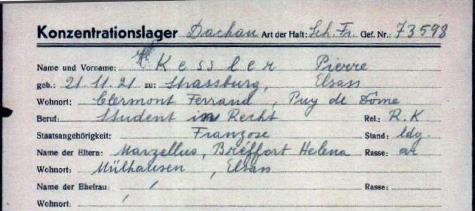 Konzentrationslager Dachau Art der Haft: Sch. Fr. Gef. Nr.: 73598
Name und Vorname: Kessler Pierre
geb.: 21.11.21 zu: Strassburg, Elsass
Wohnort: Clermont Ferrand, Puy de Dôme
Beruf: Student in Recht Rel: R.K
Staatsangehörigkeit: Franzose Stand: ldg.
Name der Eltern: Marzellus, Breffort Helena Rasse: ar
Wohnort: Mülhausen, Elsass
Name der Ehefrau: / Rasse:
Wohnort: /